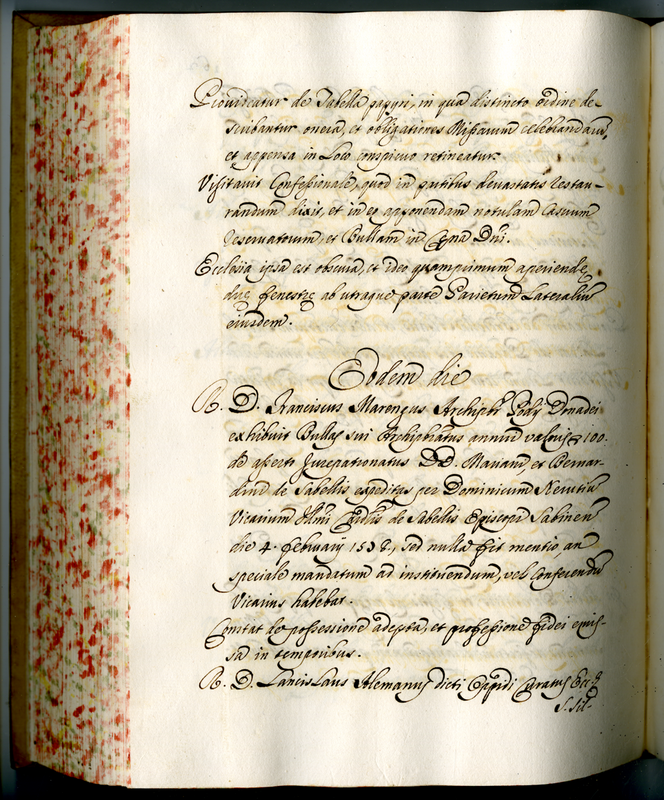 Provideatur de Tabella papyri, in qua distincto ordine de-
scribantur onera, et obligationes Missarum celebrandarum,
et appensa in Loco conspicuo retineatur.
Visitavit Confessionale, quod in partibus devastatis restau-
randum dixit, et in eo apponendam notulam Casuum
reservatorum, et Bullam in Cęna Dñi.
Ecclesia ipsa est obscura, et ideo quamprimum aperiendę
duę fenestrę ab utraque parte Parietum Lateraliũ
eiusdem.
Eodem die
R. D. Franciscus Marengus Archipr̃ Pódij Donadei
exhibuit Bullas sui Archipr̃atus annui valoris 100.
de aperto Jurepatronatus DD. Mariani et Bernar-
dini de Sabellis expeditas per Dominicum
Vicarium Illmi Cardlis de Sabellis Episcopi Sabinen
die 4. february 1582, sed nulla fit mentio, an
speciale mandatum ad instituendum, vel Conferendũ
Vicarius habebat.
Constat de possessione adepta, et professione fidei emis-
sa in temporibus.
R. D. Lancislaus Alemanus dicti Oppidi Curatus Eccę
S. Sil-